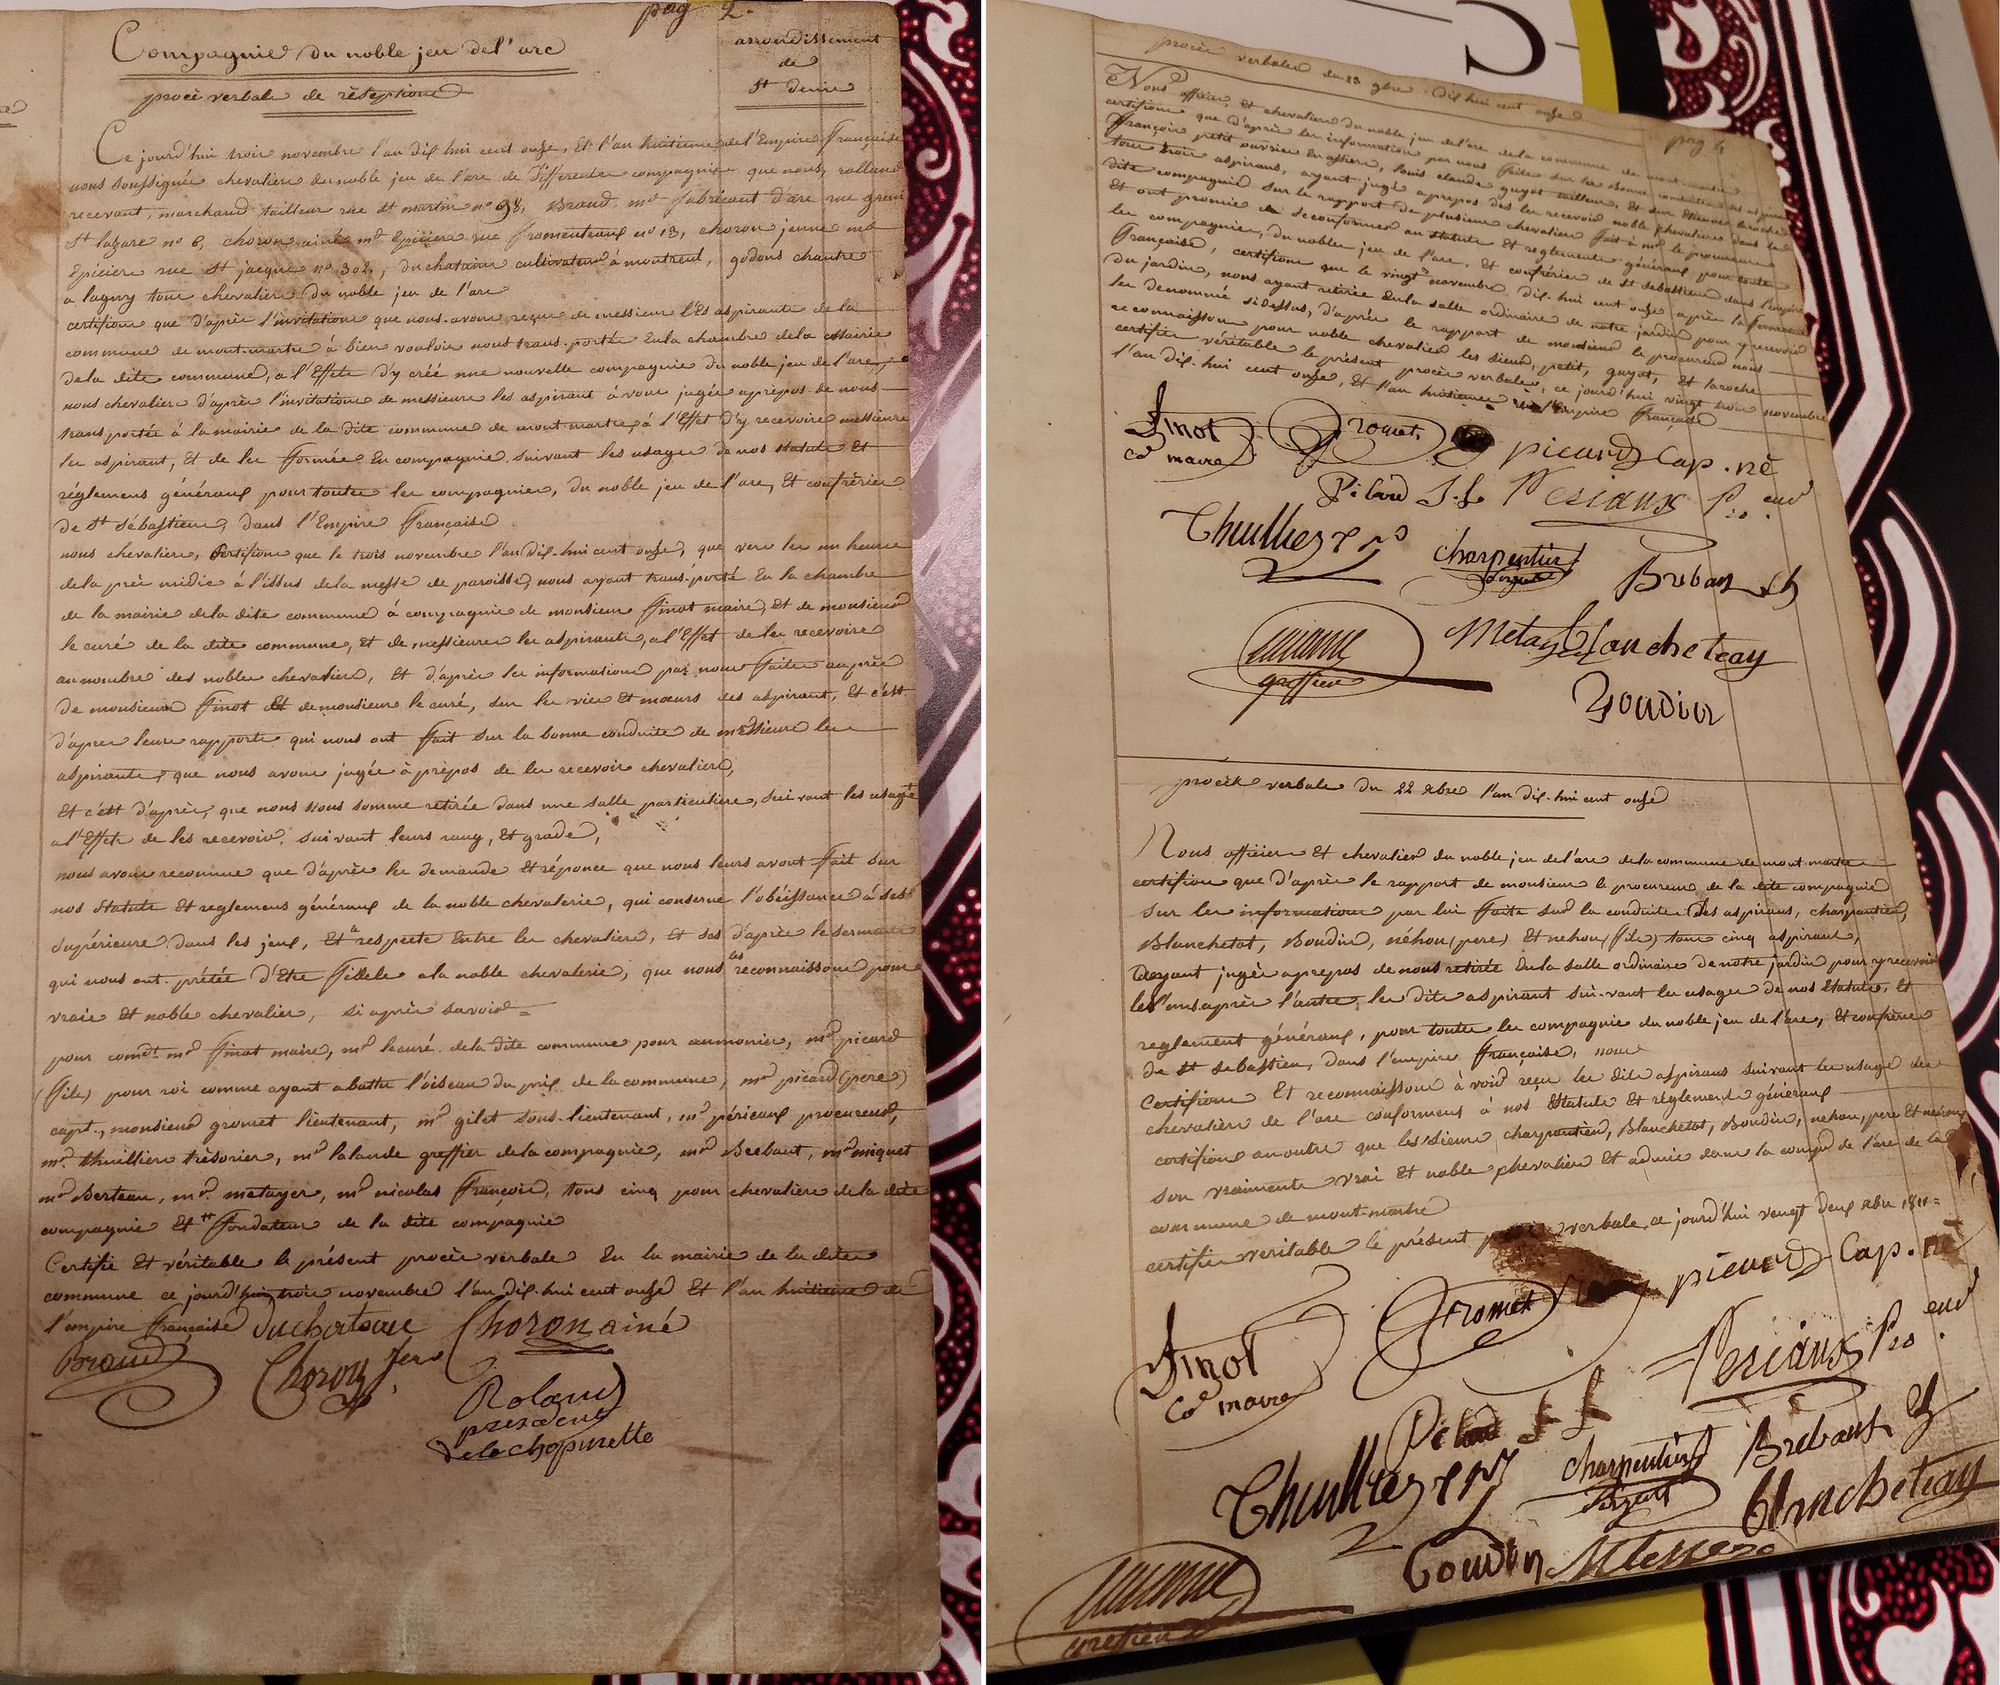 pag 2.
Compagnie du noble jeu del'arc
arrondissement
de
St Denis
procè verbale de réseptions
Ce jourd'hui trois novembre l'an dix huit cent onze, Et l'an huitieme de l'Empire Française
nous soussignés chevaliers du noble jeu de l'arc de differentes compagnie que nous, rolland
recevant, marchand tailleur rue St martin no 98, Braud, md fabricant d'arc rue
St lazare no 6, choron ainé md Epicier rue fromenteaux no 13, choron jeune md
Epiciers rue St jacque no 302, duchateau cultivateur à montreul, godons chantre
a lagny tous chevaliers du noble jeu de l'arc
certifions que d'après l'invitation que nous avons reçue de messieurs l'Es aspirants de la
commune de mont-martre à bien vouloir nous trans-porté En la chambre de la Mairie
de la dite commune, a l'Effete d'y créé une nouvelle compagnie du noble jeu de l'arc,
nous chevaliers d'après l'invitations de messieurs les aspirant à vons jugée apropos de nous
transportée à la mairie de la dite commune de mont martre, à l'Effet d'y recevoire messieurs
les aspirant, Et de les formée En compagnie suivant les usages de nos statuts Et
réglemens généraux pour toutes les compagnies, du noble jeu de l'arc, Et confrèries
de St Sébastiens, dans l'Empire française
nous chevaliers, Certifions que le trois novembre l'an dix-hui cent onze, que vers les un heure
de la près midie à l'issus de la messe de paroisse, nous ayant trans-porté En la chambre
de la mairie de la dite commune à compagnie de monsieur finot maire, Et de monsieur
le curé de la dite commune, Et de messieurs les aspirants, a l'Effet de les recevoire
au nombre des nobles chevaliers, Et d'après les information par nous faite auprès
de monsieur finot Et de monsieur le curé, sur les vies Et mœurs des aspirant, Et c'est
d'apres leurs rapports qui nous ont fait sur la bonne conduite de messieurs les
aspirants, que nous avons jugée à propos de les recevoir chevaliers,
Et c'est d'après, que nous nous somme retirée dans une salle particuliere, suivant les usages
a l'Effete de les recevoir, suivant leurs rang, Et grade,
nous avons reconnue que d'après les demande Et réponce que nous leurs avont fait sur
nos Statuts Et reglemens généraux de la noble chevalerie, qui conserne l'obéissance à ses
supérieurs dans les jeux, Et a respecte Entre les chevaliers, Et ses d'après le serment
qui nous ont prétée d'Etre fidele a la noble chevalerie, que nous les reconnaissons pour
vraie Et noble chevalier, si après savoir =
pour comdt mr finot maire, mr le curé de la dite commune pour aumonier, mr picard
(fils) pour roi comme ayant abattu l'oiseau du prix de la commune, mr picard (pere)
capt., monsieur gromet lieutenant, mr gilet sous-lieutenant, mr périeaux procureur,
mr thuilliers trèsorier, mr lalande greffier de la compagnie, mr Brebant, mr miquet
mr Berteau, mr metayer, mr nicolas françois, tous cinq pour chevaliers de la dite
compagnie Et fondateur de la dite compagnie
Certifie Et véritable le présent procès verbale En la mairie de la dite
commune ce jourd'hui trois novembre l'an dix-hui cent onze Et l'an huitieme de
l'empire française
Duchateau
Choron ainé
Braud
Choron Jeune
Roland
president
de la chopinette
procès verbales du 23 9bre dix hui cent onze
pag 4
Nous officier, Et chevaliers du noble jeu de l'arc de la commune de mont-martre
certifions que d'après les information par nous faite sur les bonne conduite des
françois petit ouvrier En platre, louis claude guyot tailleur, Et sur Etienne laroche
tous trois aspirans, ayant jugé apropos des les recevoir noble chevaliers dans la
dite compagnie sur le rapport de plusieurs chevaliers fait à mr le procureur
Et ont promis de se conformer au statuts Et reglements généraux pour toutes
les compagnies, du nobles jeu de l'arc, Et confrérie de St Sebastien dans l'empire
française, certifions que le vingt novembre dix-hui cent onze après la fermeture
du jardin, nous ayant retirée En la salle ordinaire de notre jardin pour y recevoir
les denommé si dessus, d'après le rapport de monsieur le procureur nous
reconnaissons pour noble chevalier les sieurs, petit, guyot, Et laroche
certifie véritable le présent procès verbale, ce jourd'hui vingt trois novembre
l'an dix-hui cent onze, Et l'an huitieme de l'Empire française
finot
Cd maire
Gromet
picard Cap. ne
Pilard S.L
Periaux Pro.eur
Thuillier
Charpentier
Sergent
Breban Ch
Lalande
greffier
Metayer
Blancheteau
Boudin
procès verbale du 22 xbre l'an dix-hui cent onze
Nous officier Et chevalier du noble jeu del'arc de la commune de mont-martre
certifions que d'après le rapport de monsieur le procureur de la dite compagnie
sur les informations par lui faite sur la conduite des aspirans, charpentier,
Blanchetot, Boudin, néhou (pere) Et nehou (fils) tous cinq aspirant,
ayant jugée apropos de nous retirée En la salle ordinaire de notre jardin pour y recevoir
les l'uns après l'autre, les dits aspirant suivant les usages de nos Statuts, Et
reglement généraux, pour toute les compagnie du noble jeu de l'arc, Et confrérie
de St Sebastien, dans l'empire française, nous
Certifions Et reconnaissons à voir reçu les dits aspirans suivant les usage des
chevaliers de l'arc conformement à nos Statuts Et réglement généraux
certifions an outre que les sieurs charpentier, Blanchetot, Boudin, nehou, pere Et nehou fils
son vraiments vrai Et noble chevalier Et admis dans la compd de l'arc de la
commune de mont-martre
certifier veritable le présent procès verbale, ce jourd'hui vengt deux xbre 1811 =
finot
Cd maire
Gromet
picard Cap. ne
Periaux Pro.eur
Pilard S L
Thuillier
Charpentier
Sergent
Brebant Ch
Blancheteau
Boudin
Lalande
greffier